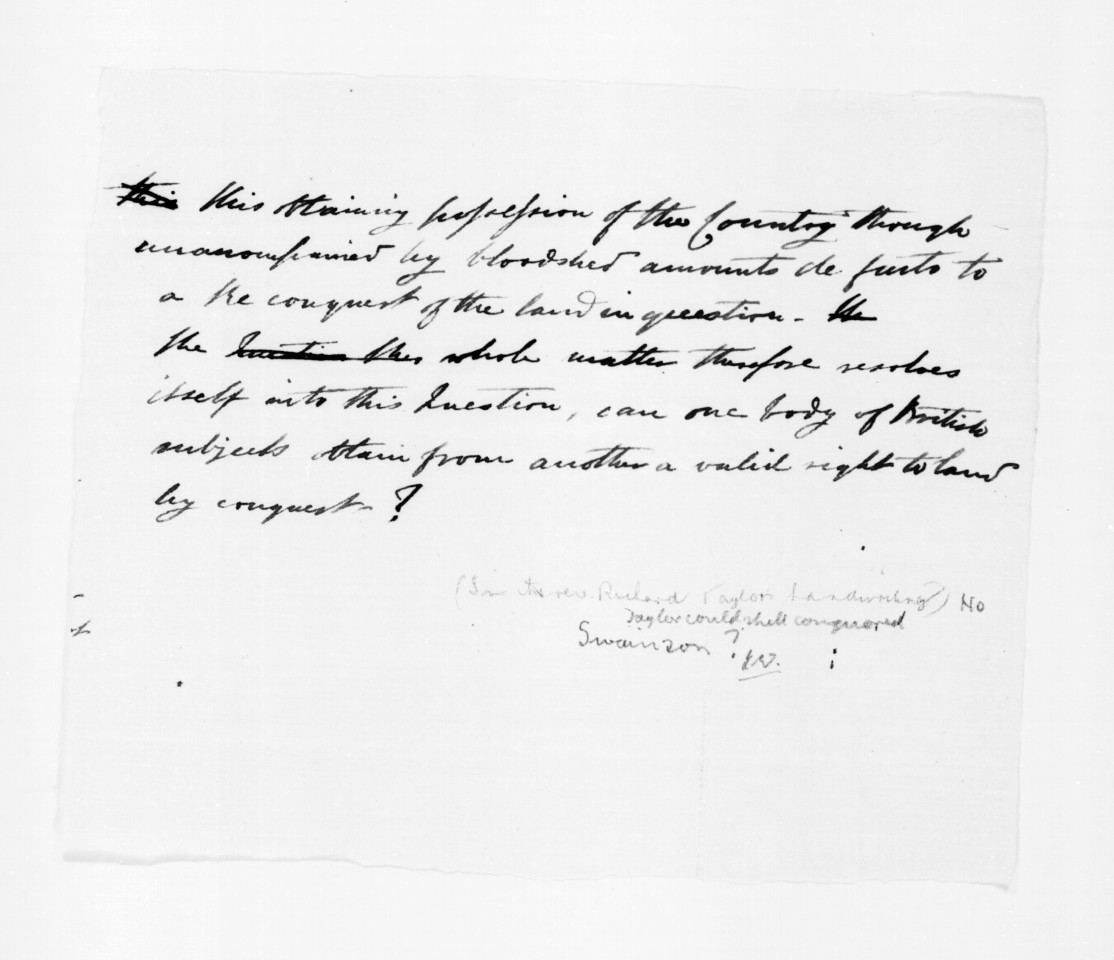 ~~this~~ this obtaining possession of the Country though
unaccompained by bloodshed amounts de facto to
a Re conquest of the land in question - ~~the~~
the ~~Question this~~ whole matter therefore resolves
itself into this Question, can one body of British
subjects obtain from another a valid right to land
by conquest ?
(In the rev. Richard Taylors handwriting) No
Taylor could spell conquered
Swainson ?